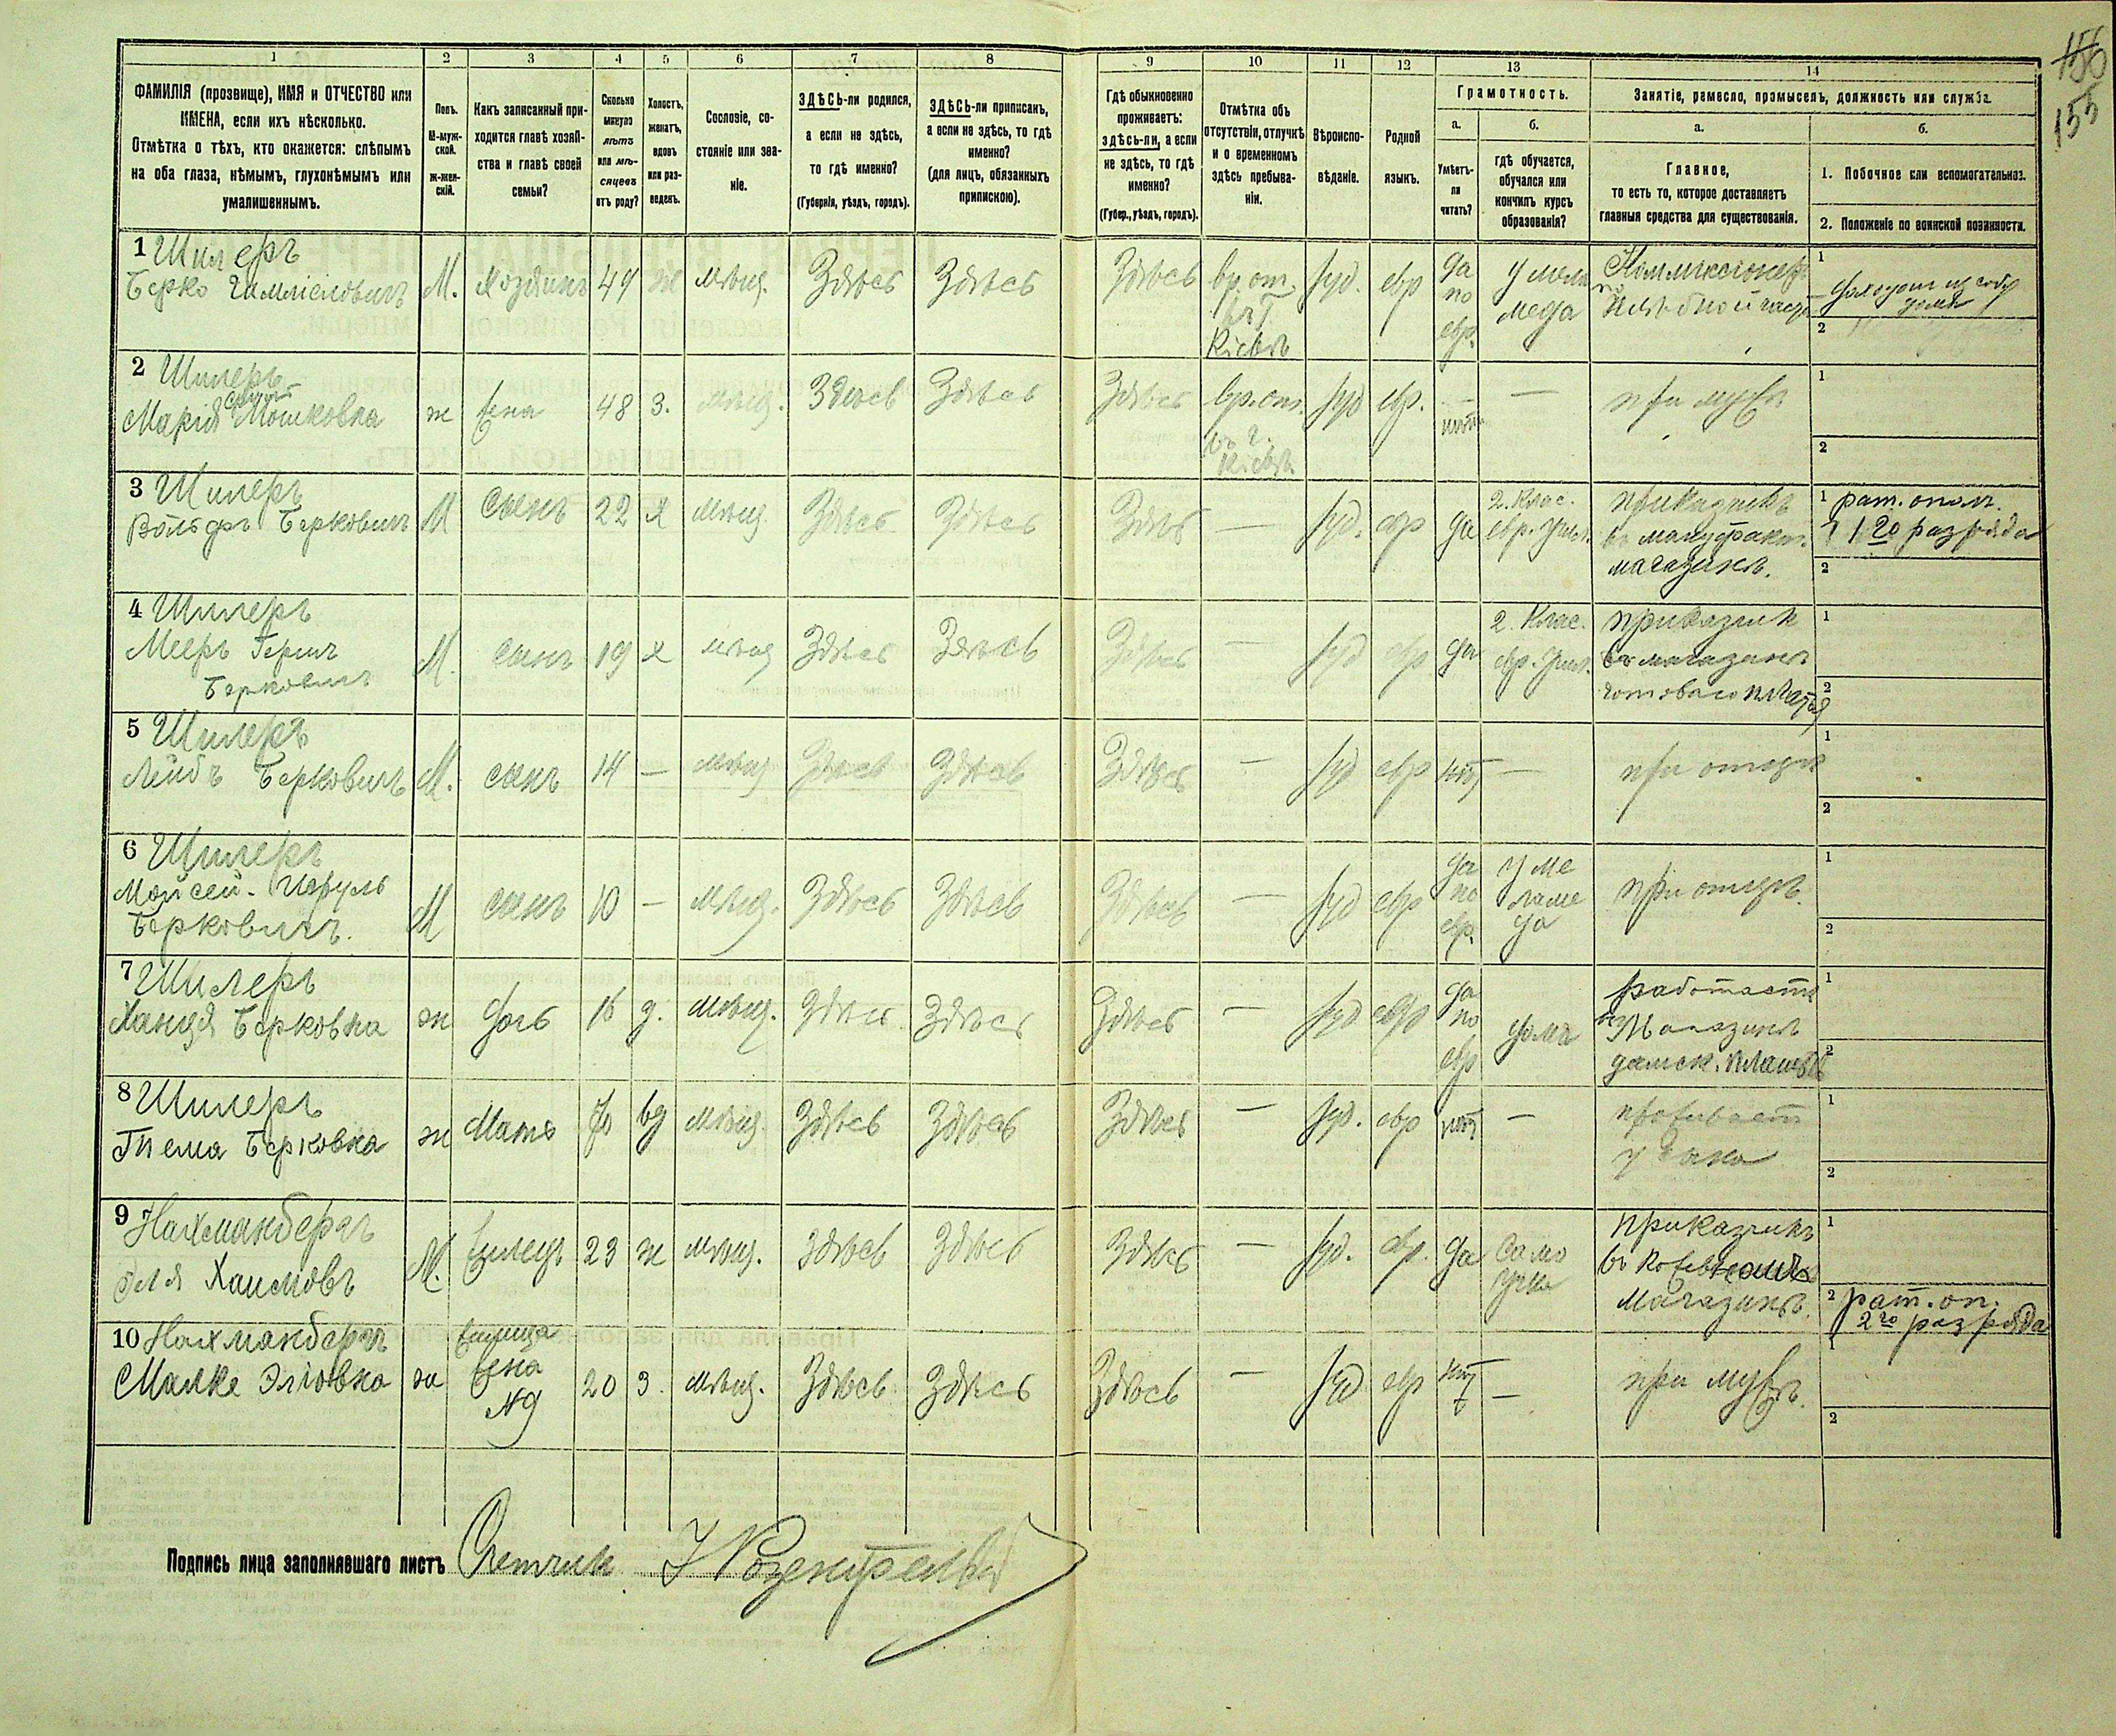 156
155
1
2
3
4
5
6
7
8
9
10
11
12
13
14
ФАМИЛІЯ (прозвище), ИМЯ и ОТЧЕСТВО или
ИМЕНА, если ихъ нѣсколько.
Отмѣтка о тѣхъ, кто окажется: слѣпымъ
на оба глаза, нѣмымъ, глухонѣмымъ или
умалишеннымъ.
Полъ.
М-муж-
ской.
ж-жен-
скій.
Какъ записанный при-
ходится главѣ хозяй-
ства и главѣ своей
семьи?
Сколько
минуло
лѣтъ
или мѣ-
сяцевъ
отъ роду?
Холостъ,
женатъ,
вдовъ
или раз-
веденъ.
Сословіе, со-
стояніе или зва-
ніе.
ЗДѢСЬ-ли родился,
а если не здѣсь,
то гдѣ именно?
(Губернія, уѣздъ, городъ).
ЗДѢСЬ-ли приписанъ,
а если не здѣсь, то гдѣ
именно?
(для лицъ, обязанныхъ
припискою).
Гдѣ обыкновенно
проживаетъ:
здѣсь-ли, а если
не здѣсь, то гдѣ
именно?
(Губер., уѣздъ, городъ).
Отмѣтка объ
отсутствіи, отлучкѣ
и о временномъ
здѣсь пребыва-
ніи.
Вѣроиспо-
вѣданіе.
Родной
языкъ.
Грамотность.
а.
Умѣетъ-
ли
читать?
б.
гдѣ обучается,
обучался или
кончилъ курсъ
образованія?
Занятіе, ремесло, промыселъ, должность или служба.
а.
Главное,
то есть то, которое доставляетъ
главныя средства для существованія.
б.
1. Побочное или вспомогательное.
2. Положеніе по воинской повинности.
1 Шилеръ
Берко
М. Хозяинъ 49 ж мѣщ. Здѣсь Здѣсь Здѣсь вр. от. въ г. Кіевъ іуд. евр да по евр. у мела меда Коммисіонеръ
1
2
2 Шилеръ
Марія Мошковна
ж жена 48 з. мѣщ. Здѣсь Здѣсь Здѣсь вр. от. въ г. Кіевъ іуд евр. — нѣтъ — при мужѣ
1
2
3 Шилеръ
Вольфъ Берковичъ
М Сынъ 22 х мѣщ. Здѣсь Здѣсь Здѣсь — іуд. евр да 2. Клас. евр. Учил. приказчикъ въ мануфакт. магазинѣ.
1 рат. ополч.
1го разряда
2
4 Шилеръ
Мееръ Герш
Берковичъ
М. сынъ 19 х мѣщ Здѣсь Здѣсь Здѣсь — іуд евр да 2. Клас. евр. Учил. приказчик въ магазинѣ готоваго платья
1
2
5 Шилеръ
Лейбъ Берковичъ
М. сынъ 14 — мѣщ Здѣсь Здѣсь Здѣсь — іуд евр нѣтъ — при отцѣ
1
2
6 Шилеръ
Мойсей-
Берковичъ.
М сынъ 10 — мѣщ. Здѣсь Здѣсь Здѣсь — іуд евр да по евр. у ме ламе да при отцѣ.
1
2
7 Шилеръ
Ханця Берковна
ж дочь 16 д. мѣщ. Здѣсь Здѣсь Здѣсь — іуд евр да по евр дома работаетъ въ Магазинѣ дамск. платьевъ
1
2
8 Шилеръ
Берковна
ж Мать 70 вд мѣщ. Здѣсь Здѣсь Здѣсь — іуд. евр нѣтъ — проживаетъ у сына
1
2
9 Нахманбергъ
Эля Хаимовъ
М. жилецъ 23 ж мѣщ. Здѣсь Здѣсь Здѣсь — іуд. евр. да Само учка приказчикъ въ Магазинѣ.
1
2 рат. оп.
2го разряда
10 Нахманбергъ
Малке Эліовна
ж жилица жена №9 20 з. мѣщ. Здѣсь Здѣсь Здѣсь — іуд евр нѣтъ — при мужѣ.
1
2
Подпись лица заполнявшаго листъ Счетчик Розенфельд